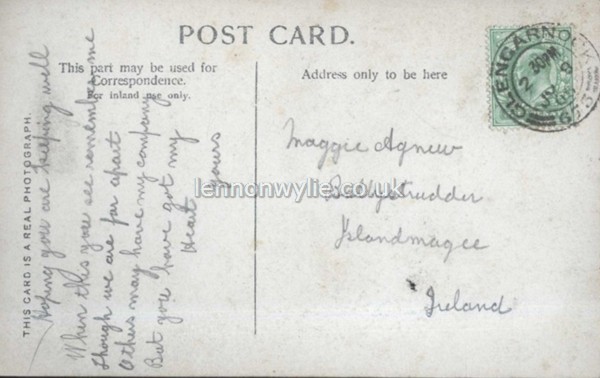 POST CARD.
This part may be used for
Correspondence.
For inland use only.
Address only to be here
THIS CARD IS A REAL PHOTOGRAPH.
Hoping you are keeping well
When this you see remember me
Though we are far apart
Others may have my company
But you have got my
Heart yours
Maggie Agnew
Ballystrudder
Islandmagee
Ireland
GLENGARNOCK
lennonwylie.co.uk